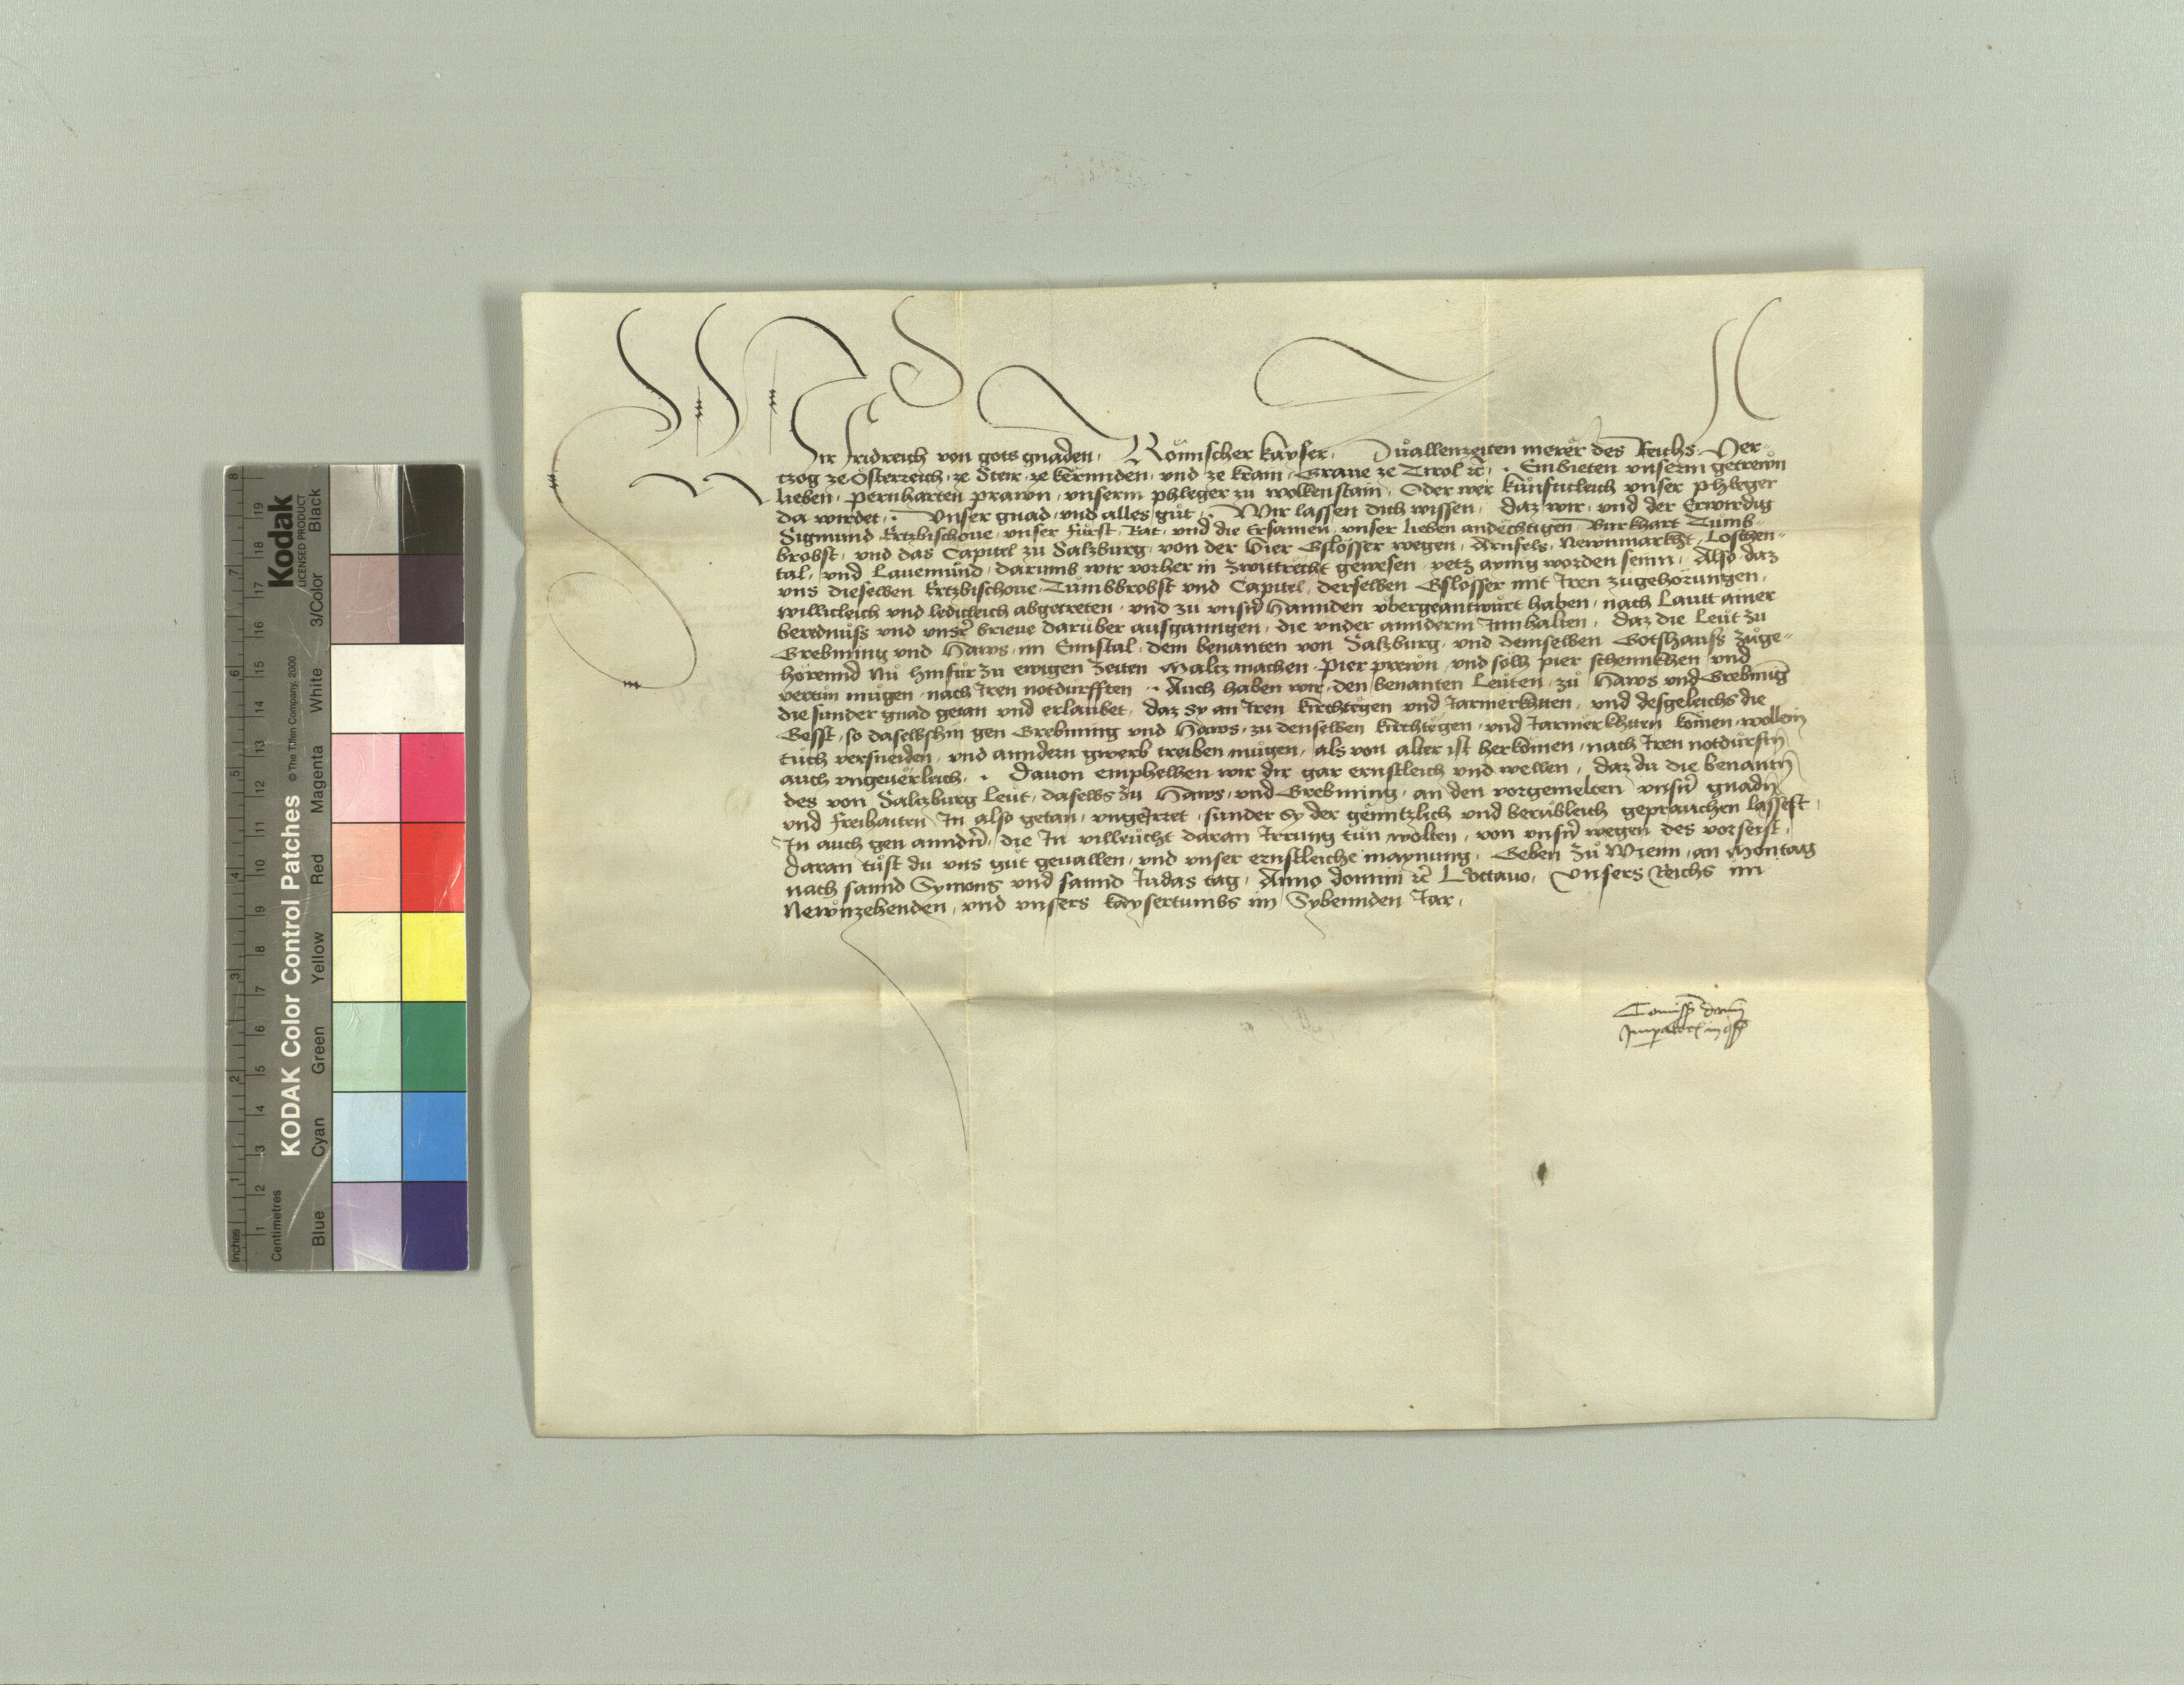 Wir Fridreich von gots gnaden, Römischer kayser, Zuallenzeiten merer des Reichs, Her-
tzog ze Österreich, ze Steir, ze kërnnden, und ze krain, Graue ze Tirol etc. Embieten unserm getrewn
lieben, pernharten prawn, unserm phleger zu wolkenstain, Oder wer künfticleich unser phleger
da wirdet, Unser gnad, und alles gůt, Wir lassen dich wissen, daz wir, und der Erwirdig
Sigmund Ertzbischoue, unser Fürst, Rat, und die Ersamen, unser lieben andechtigen Burkhart Tůmb-
brobst, und das Capitel zu Salzburg, von der Vier Gslösser wegen, Arnfels, Newnmarkht, Loschen-
tal, und Lauemünd, darumb wir vorher in zwittrecht gewesen, yetz aynig worden seinn, Also daz
uns dieselben Ertzbischoue, Tůmbbrobst und Capitel, derselben Gslösser mit Iren zugehörungen,
willicleich und ledicleich abgetreten, und zu unsern Hannden übergeantwürt haben, nach lautt ainer
berednüss und unsrer brieue darüber ausganngen, die under annderm Innhalten, daz die leüt zu
Grebming und Haws, im Ennstal, dem benanten von Salzburg, und demselben Gotshauss zuge-
hörennd Nů hinfür zu ewigen zeiten Maltz machen, pier prewn, und solh pier schennkhen und
vertun mügen, nach Iren notdurfften, Auch haben wir, den benanten Leüten, zu Haws und Grebming
die sunder gnad getan und erlaubet, daz sy an Iren kirchtëgen und Jarmerkhten, und desgeleichs die
Gesst, so daselbshin gen Grebming und Haws, zu denselben kirchtëgen, und Jarmerkhten komen, wollein
tuch versneiden, und anndern gwerb treiben mügen, als von alter ist herkömen, nach Iren notdürftn
auch ungeuerleich, Dauon emphelhen wir dir gar ernstleich und wellen, daz du die benantn
des von Salczburg Leüt, daselbs zu Haws, und Grebming, an den vorgemelten unsern gnadn
und Freihaiten In also getan, ungeirret, sunder Sy der gënntzlich und berüblich geprauchen lassest,
In auch gen anndern, die In villeücht daran Irrung tůn wolten, von unsern wegen des vorseist,
daran tůst du uns gůt geuallen, und unser ernstleiche maynung, Geben Zu Wienn, an Montag
nach sannd Symons und sannd Judas tag, Anno domini etc Loctauo, Unsers Reichs im
Newnzehenden, und unsers kaysertumbs im Sybennden Jar,
Comissio domini
Imperatoris in consilio
KODAK Color Control Patches
© The Tiffen Company, 2000
Kodak
LICENSED PRODUCT
Inches
Centimetres
Blue Cyan Green Yellow Red Magenta White 3/Color Black
1 2 3 4 5 6 7 8
1 2 3 4 5 6 7 8 9 10 11 12 13 14 15 16 17 18 19